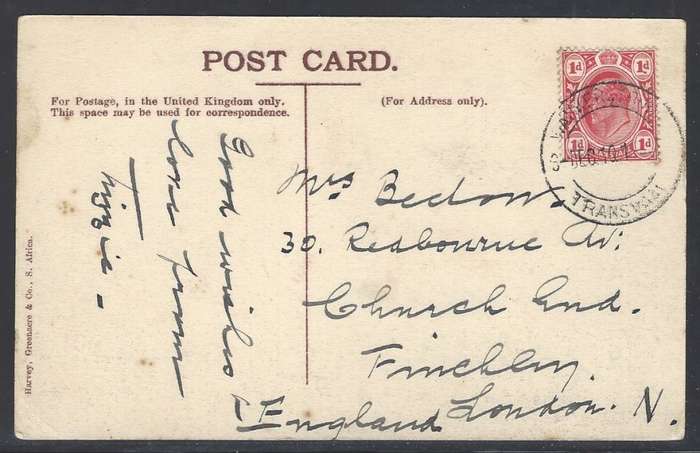 POST CARD.
For Postage, in the United Kingdom only.
This space may be used for correspondence.
(For Address only).
Good wishes &
love from
Lizzie –
Mrs Bedow.
30. Redbourne Av:
Church End.
Finchley.
London. N.
England
Harvey, Greenacre & Co., S. Africa.
1d 1d
1d 1d
DEC 10
TRANSVAAL